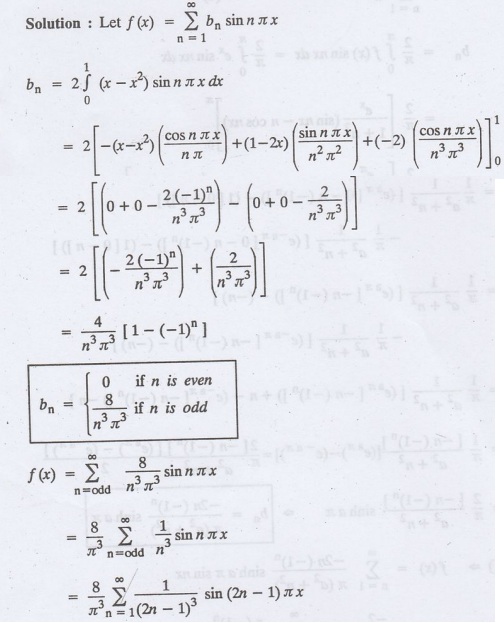 Solution : Let f (x) = ∞ Σ n = 1 bₙ sin n π x
bₙ = 2 ∫₀¹ (x – x²) sin n π x dx
= 2 [ –(x–x²) (cos n π x / n π) +(1–2x) (sin n π x / n² π²) +(–2) (cos n π x / n³ π³) ]₀¹
= 2 [ (0 + 0 – 2 (–1)ⁿ / n³ π³) – (0 + 0 – 2 / n³ π³) ]
= 2 [ (– 2 (–1)ⁿ / n³ π³) + (2 / n³ π³) ]
= 4 / n³ π³ [ 1 – (–1)ⁿ ]
bₙ = { 0 if n is even
8 / n³ π³ if n is odd
f (x) = ∞ Σ n=odd 8 / n³ π³ sin n π x
= 8 / π³ ∞ Σ n=odd 1 / n³ sin n π x
= 8 / π³ ∞ Σ n = 1 1 / (2n – 1)³ sin (2n – 1) π x